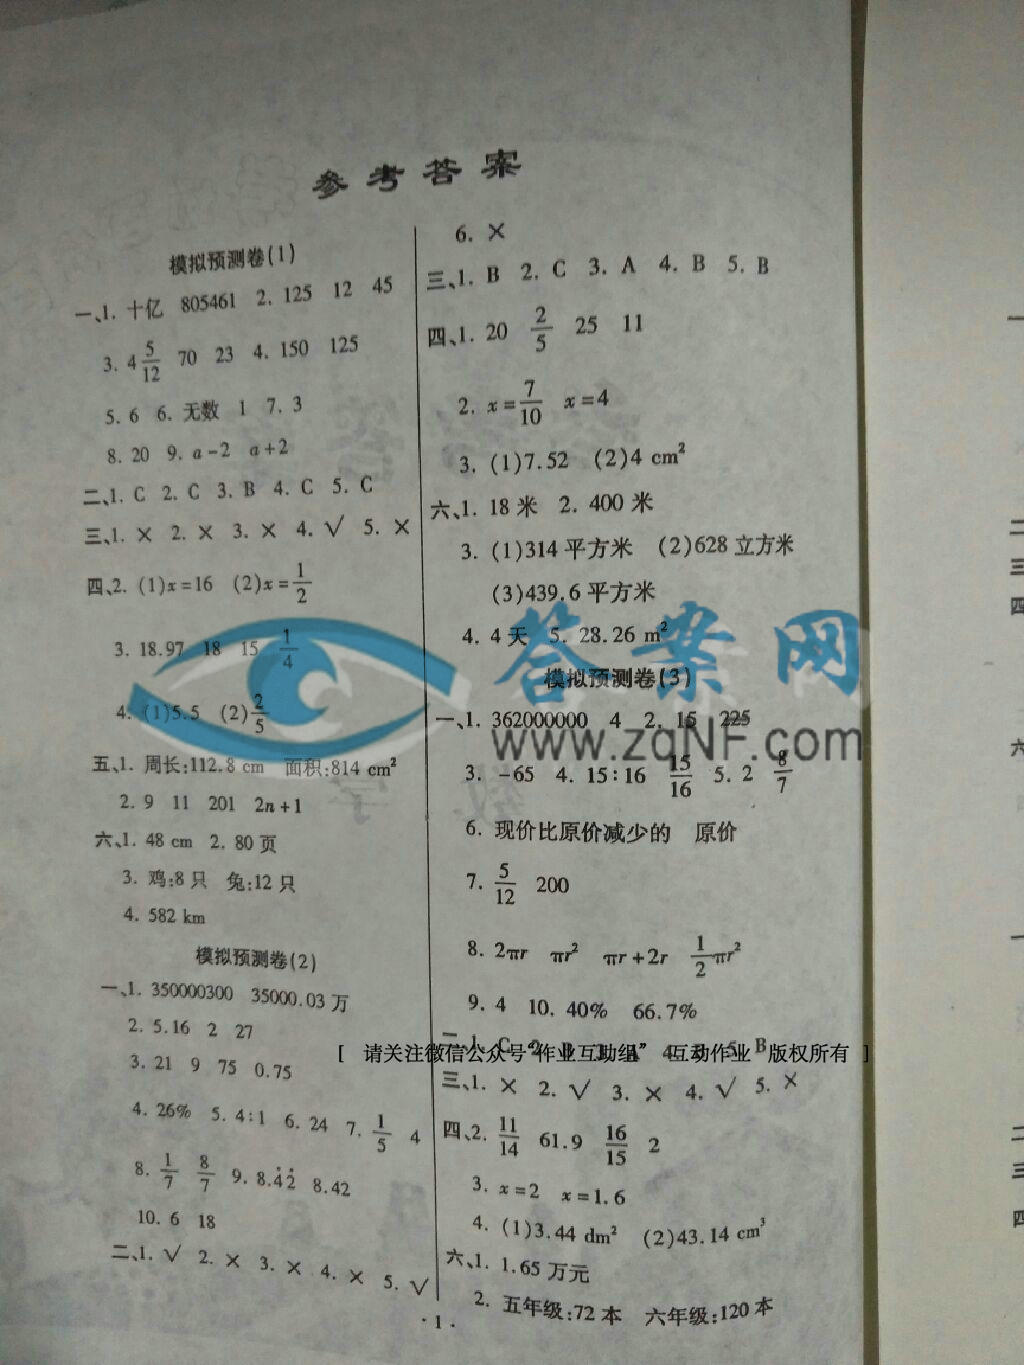 参考答案
模拟预测卷(1)
一、1. 十亿 805461 2. 125 12 45
3. 4 5/12 70 23 4. 150 125
5. 6 6. 无数 1 7. 3
8. 20 9. a-2 a+2
二、1. C 2. C 3. B 4. C 5. C
三、1. × 2. × 3. × 4. √ 5. ×
四、2. (1)x=16 (2)x=1/2
3. 18.97 18 15 1/4
4. (1)5.5 (2)2/5
五、1. 周长:112.8 cm 面积:814 cm²
2. 9 11 201 2n+1
六、1. 48 cm 2. 80 页
3. 鸡:8 只 兔:12 只
4. 582 km
模拟预测卷(2)
一、1. 350000300 35000.03 万
2. 5.16 2 27
3. 21 9 75 0.75
4. 26% 5. 4:1 6. 24 7. 1/5 4
8. 1/7 8/7 9. 8.4̇2̇ 8.42
10. 6 18
二、1. √ 2. × 3. × 4. × 5. √
6. ×
三、1. B 2. C 3. A 4. B 5. B
四、1. 20 2/5 25 11
2. x=7/10 x=4
3. (1)7.52 (2)4 cm²
六、1. 18 米 2. 400 米
3. (1)314 平方米 (2)628 立方米
(3)439.6 平方米
4. 4 天 5. 28.26 m²
模拟预测卷(3)
一、1. 362000000 4 2. 15 225
3. -65 4. 15:16 15/16 5. 2 8/7
6. 现价比原价减少的 原价
7. 5/12 200
8. 2πr πr² πr+2r 1/2πr²
9. 4 10. 40% 66.7%
二、1. C 2. B 3. A 4. 5. B
三、1. × 2. √ 3. × 4. √ 5. ×
四、2. 11/14 61.9 16/15 2
3. x=2 x=1.6
4. (1)3.44 dm² (2)43.14 cm³
六、1. 1.65 万元
2. 五年级:72 本 六年级:120 本
· 1 ·
答案网
www.zqNF.com
[ 请关注微信公众号“作业互助组” 互动作业 版权所有 ]
一
二
三
四
六
一
二
三
四